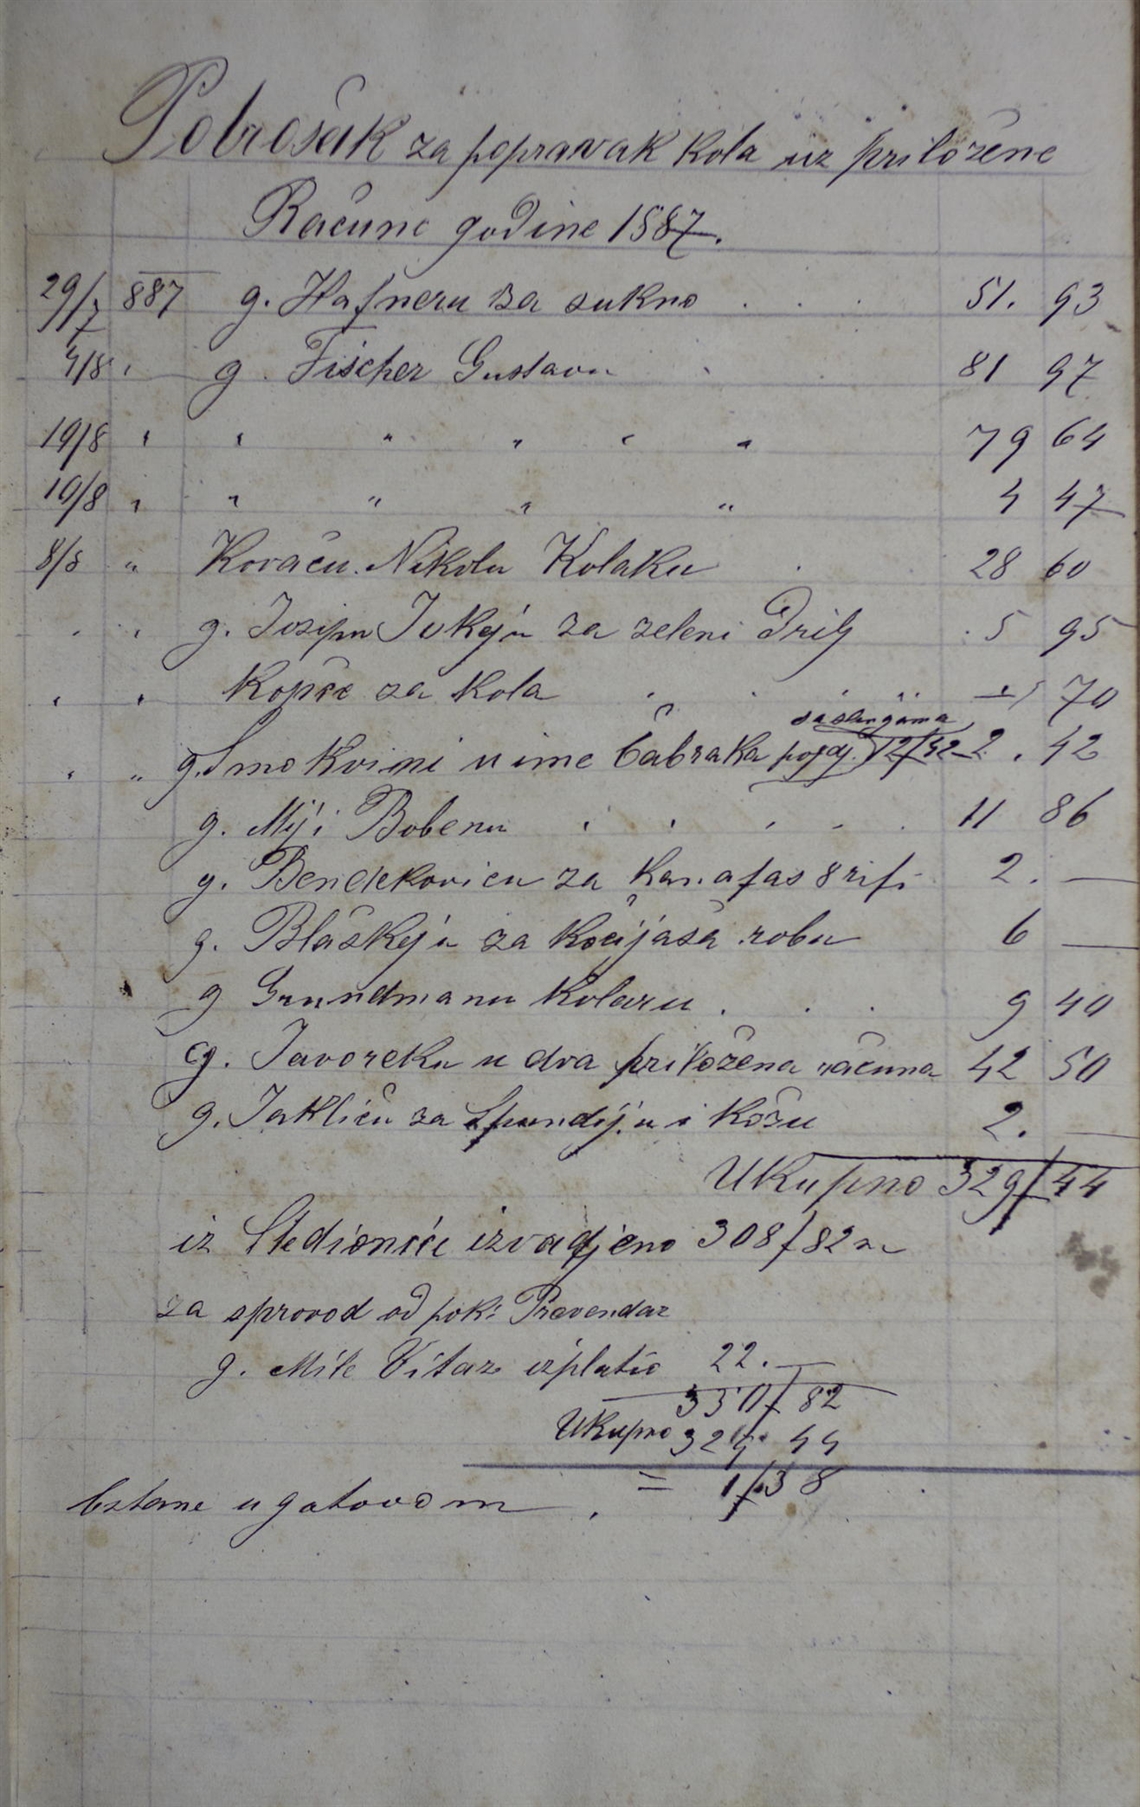 Potrošak za popravak kola uz priložene
Račune godine 1887.
29/7 887 g. Hafneru za sukno . . . 51. 93
4/8 " g. Fischer Gustavu . . 81 97
19/8 " " " " " " 79 64
10/8 " " " " " 4 47
8/8 " Kovaču Nikolu Kolaku . 28 60
" " g. Josipu Jukeju za zeleni Drilj . 5 95
" " Kopče za kola . . . — 70
" " g. Smokvini u ime Čabraka 2 . 42
g. Mij i Bobenu . . . . . 11 86
g. Bendekoviću za Kanafas 8 rifi 2. —
g. Blaškeju za kočijaša robu 6 —
g Grundmanu Kolaru . . . 9 40
g. Javoreku u dva priložena računa 42 50
g. Jakliću za i kožu 2. —
Ukupno 329/44
iz Štedionice izvadjeno 308/82
za sprovod od pok: Prevendar
g. Mile Vitaz izplatio 22. —
330/82
Ukupno 329 44
= 1/38
Ostane u gotovom .